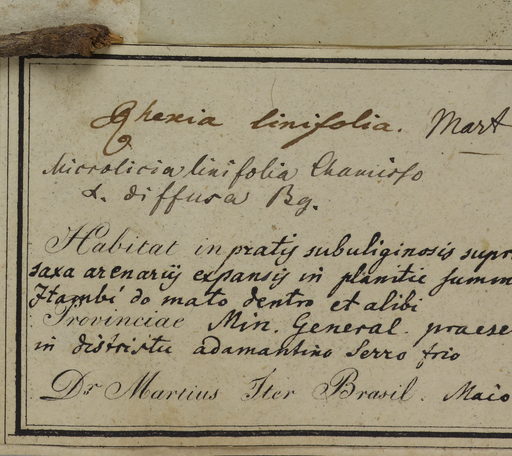 Rhexia linifolia. Mart
Microlicia linifolia Chamisso
α. diffusa Bg.
Habitat in pratis subuliginosis supr
saxa arenariis expansis in planitie summ
Itambé do mato dentro et alibi
Provinciae Min. General. praese
in districtu adamantino Serro frio
Dr Martius Iter Brasil. Maio